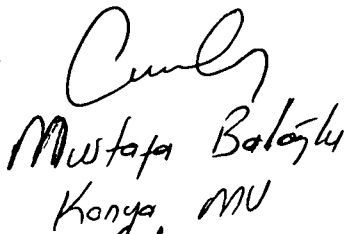 Mustafa Baloğlu
Konya MV